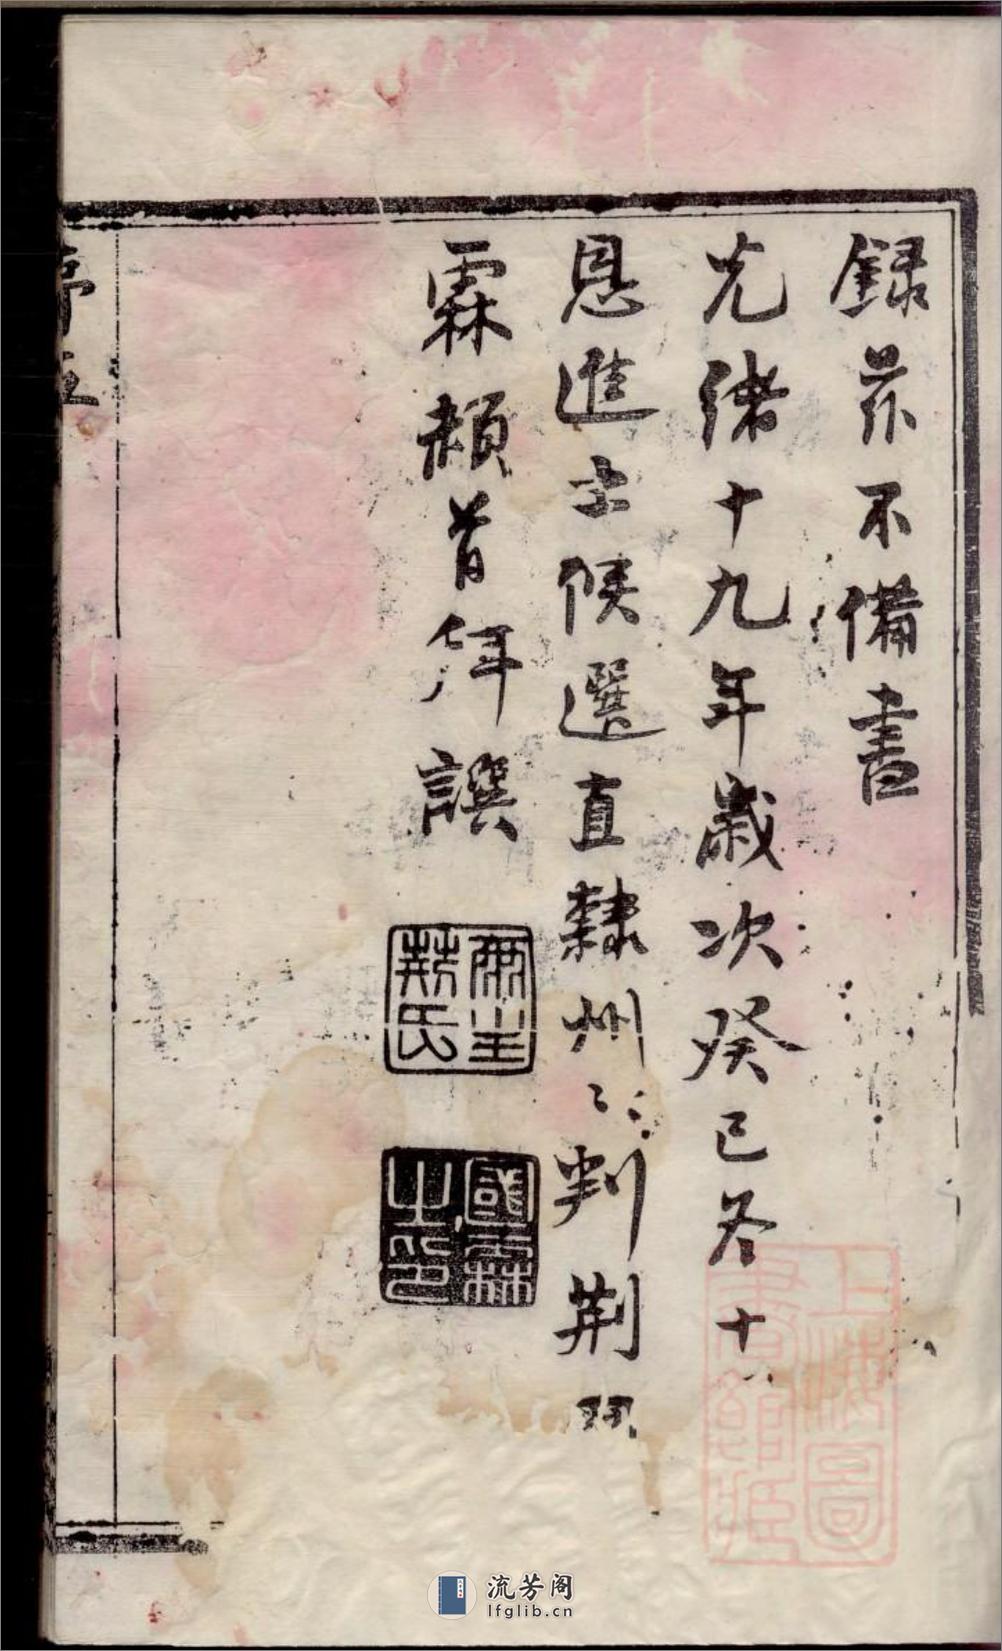 錄茲不備書
光緒十九年歲次癸巳冬十
恩進士候選直隸州州判荆
霖頓首拜譔
荊氏
國霖之印
序
上海圖書館藏
流芳阁
lfglib.cn